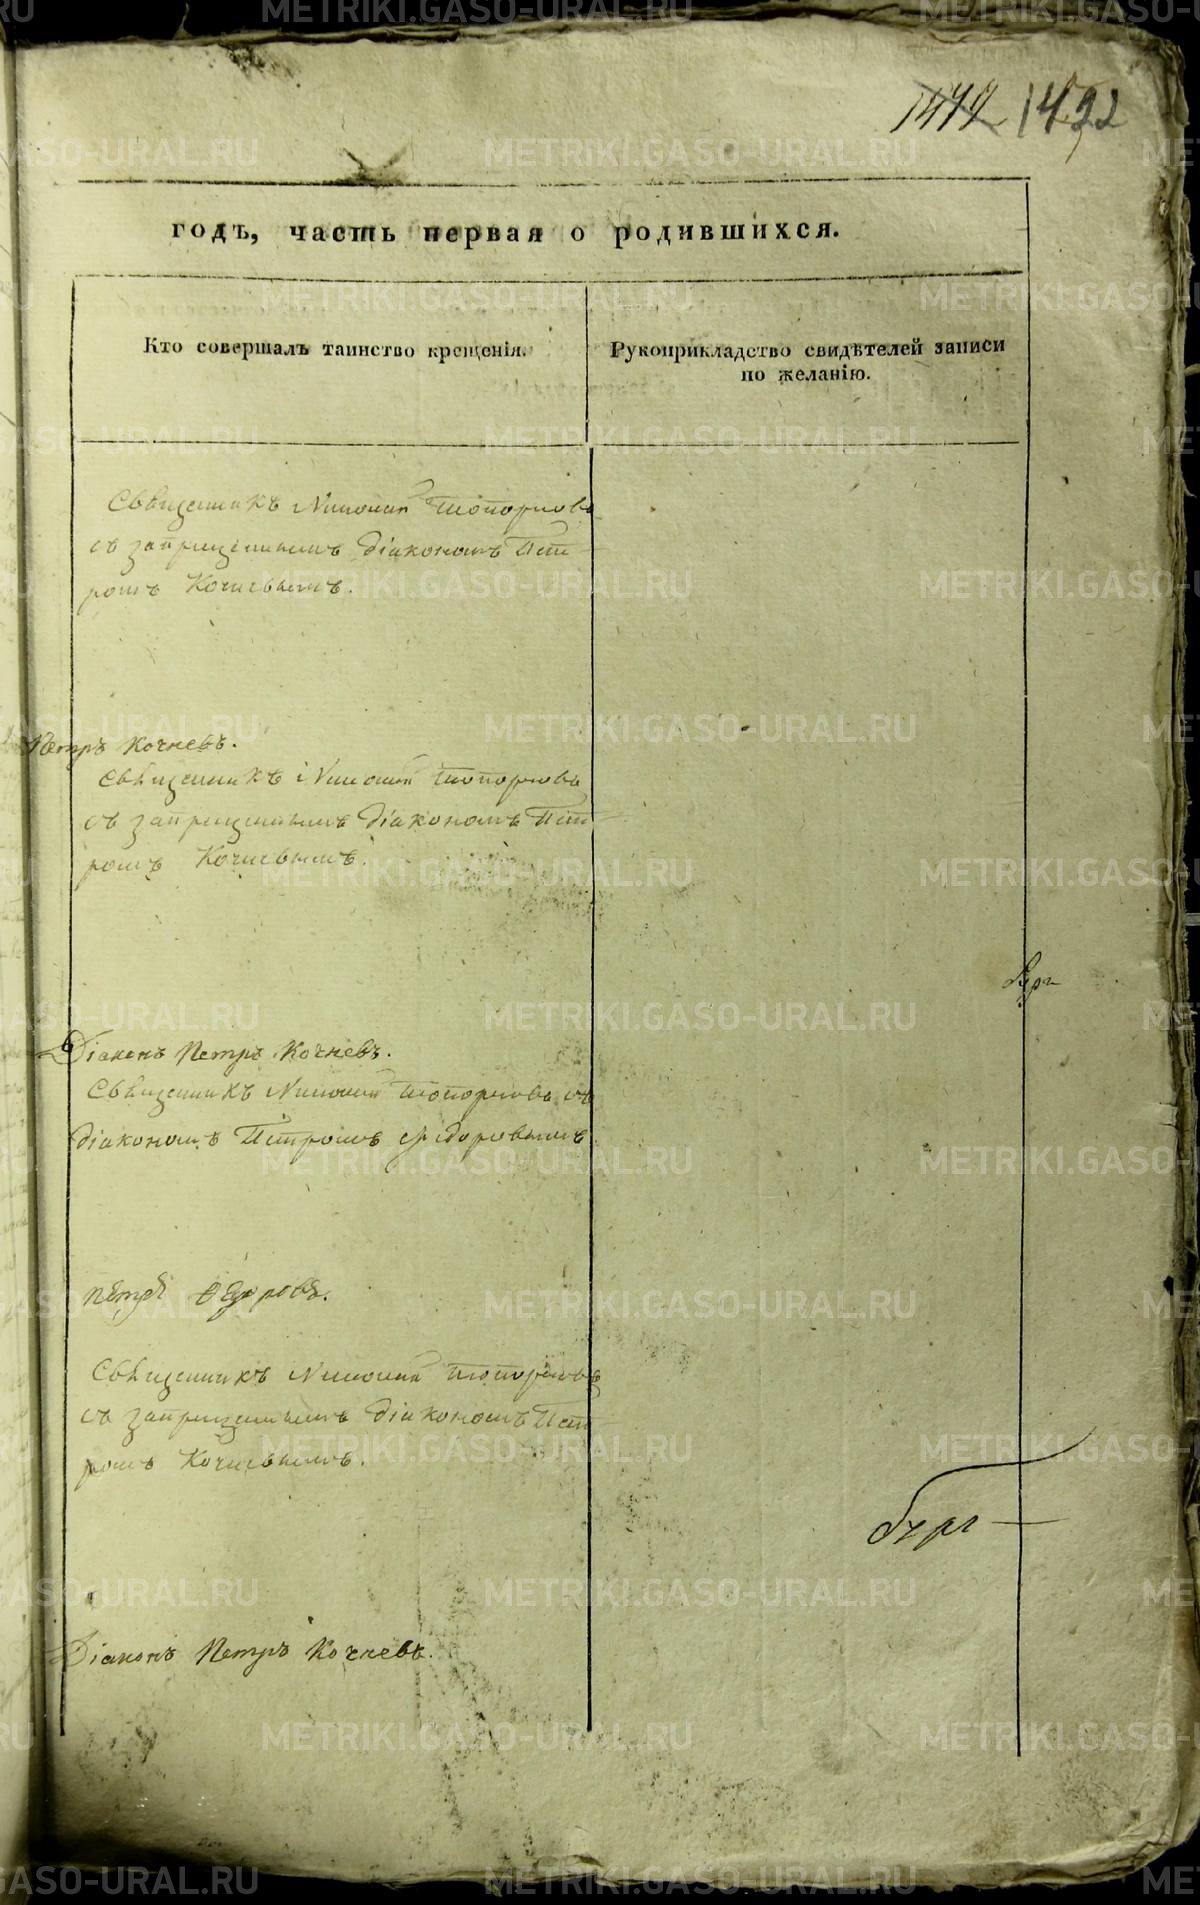 1477 1492
годъ, часть первая о родившихся.
Кто совершалъ таинство крещенія.
Рукоприкладство свидѣтелей записи
по желанію.
Священникъ Николай Топорковъ
съ запрещеннымъ діакономъ Пет
ромъ Кочневымъ.
Петръ Кочневъ.
Священникъ Николай Топорковъ
съ запрещеннымъ діакономъ Пет
ромъ Кочневымъ.
Діаконъ Петръ Кочневъ.
Священникъ Николай Топорковъ съ
діакономъ Петромъ Ѳедоровымъ
Петръ Ѳедоровъ.
Священникъ Николай Топорковъ
съ запрещеннымъ діакономъ Пет
ромъ Кочневымъ.
Діаконъ Петръ Кочневъ.
METRIKI.GASO-URAL.RU